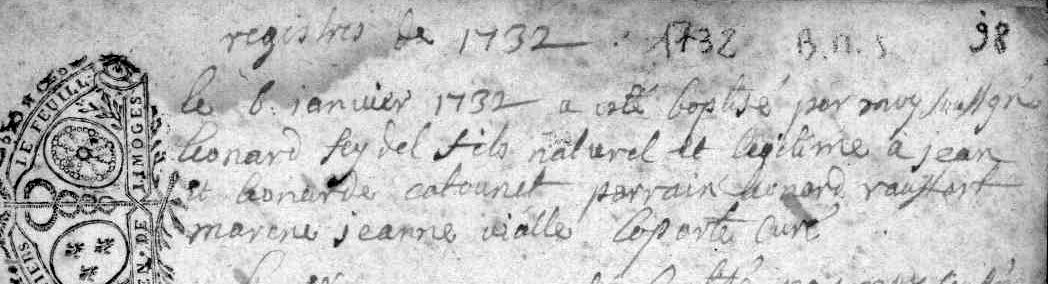 registres de 1732 . 1732 B. M. S 98
le 6. ianvier 1732 a esté boptisé par moy soussigné
leonard feydel fils naturel et legitime a jean
et leonarde catounet parrain leonard
marene jeanne vialle laporte curé
LE FEUILL.
EN. DE LIMOGES